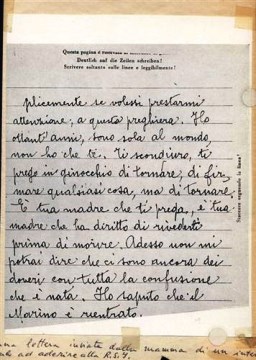 Questa pagina è riservata
Deutlich auf die Zeilen schreiben!
Scrivere soltanto sulle linee e leggibilmente!
plicemente se volessi prestarmi
attenzione, a questa preghiera. Ho
ottant'anni, sono sola al mondo,
non ho che te. Ti scongiuro, ti
prego in ginocchio di tornare, di fir,
mare qualsiasi cosa, ma di tornare.
È tua madre che ti prega, è tua
madre che ha diritto di rivederti
prima di morire. Adesso non mi
potrai dire che ci sono ancora dei
doveri con tutta la confusione
che è nata. Ho saputo che il
Marino è rientrato.
lettera inviata dalla mamma di un
ad aderire alla R.S.I.